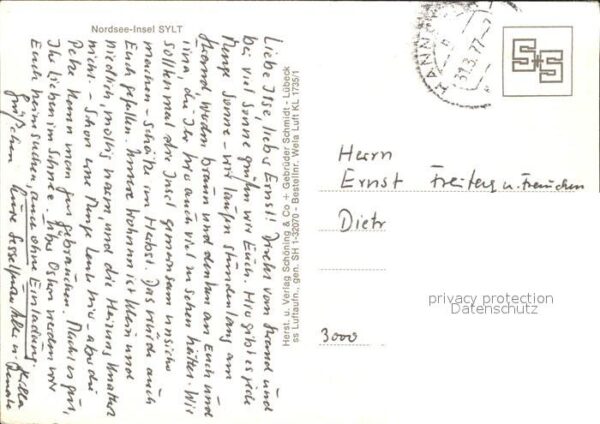 Nordsee-Insel SYLT
Liebe Ilse, lieber Ernst! Direkt vom Strand und
bei viel Sonne grüßen wir Euch. Hier gibt es jede
Menge Sonne - wir laufen stundenlang am
Strand, werden braun und denken an Euch und
, die Ihr hier auch viel zu sehen hätten. Wir
sollten mal die Insel gemeinsam unsicher
machen - Schätze im Herbst. Das würde auch
Euch gefallen. Unsere Wohnung ist klein und
niedlich, mollig warm, und die Heizung knattert
nicht. - Schon eine Menge Leute hier - aber die
Pelze kann man gut gebrauchen. Macht's gut,
Ihr Lieben im Schnee. Über Ostern werden wir
Euch heimsuchen, auch ohne Einladung.
Grüßchen Eure
Renate
Herst. u. Verlag Schöning & Co + Gebrüder Schmidt - Lübeck
ss Luftaufn., gen. SH 1-32070 - Bestellnr. Weila Luft KL 1735/1
HANN
31.3.77
Herrn
Ernst Freitag u. Frauchen
Dietr
3000
privacy protection
Datenschutz